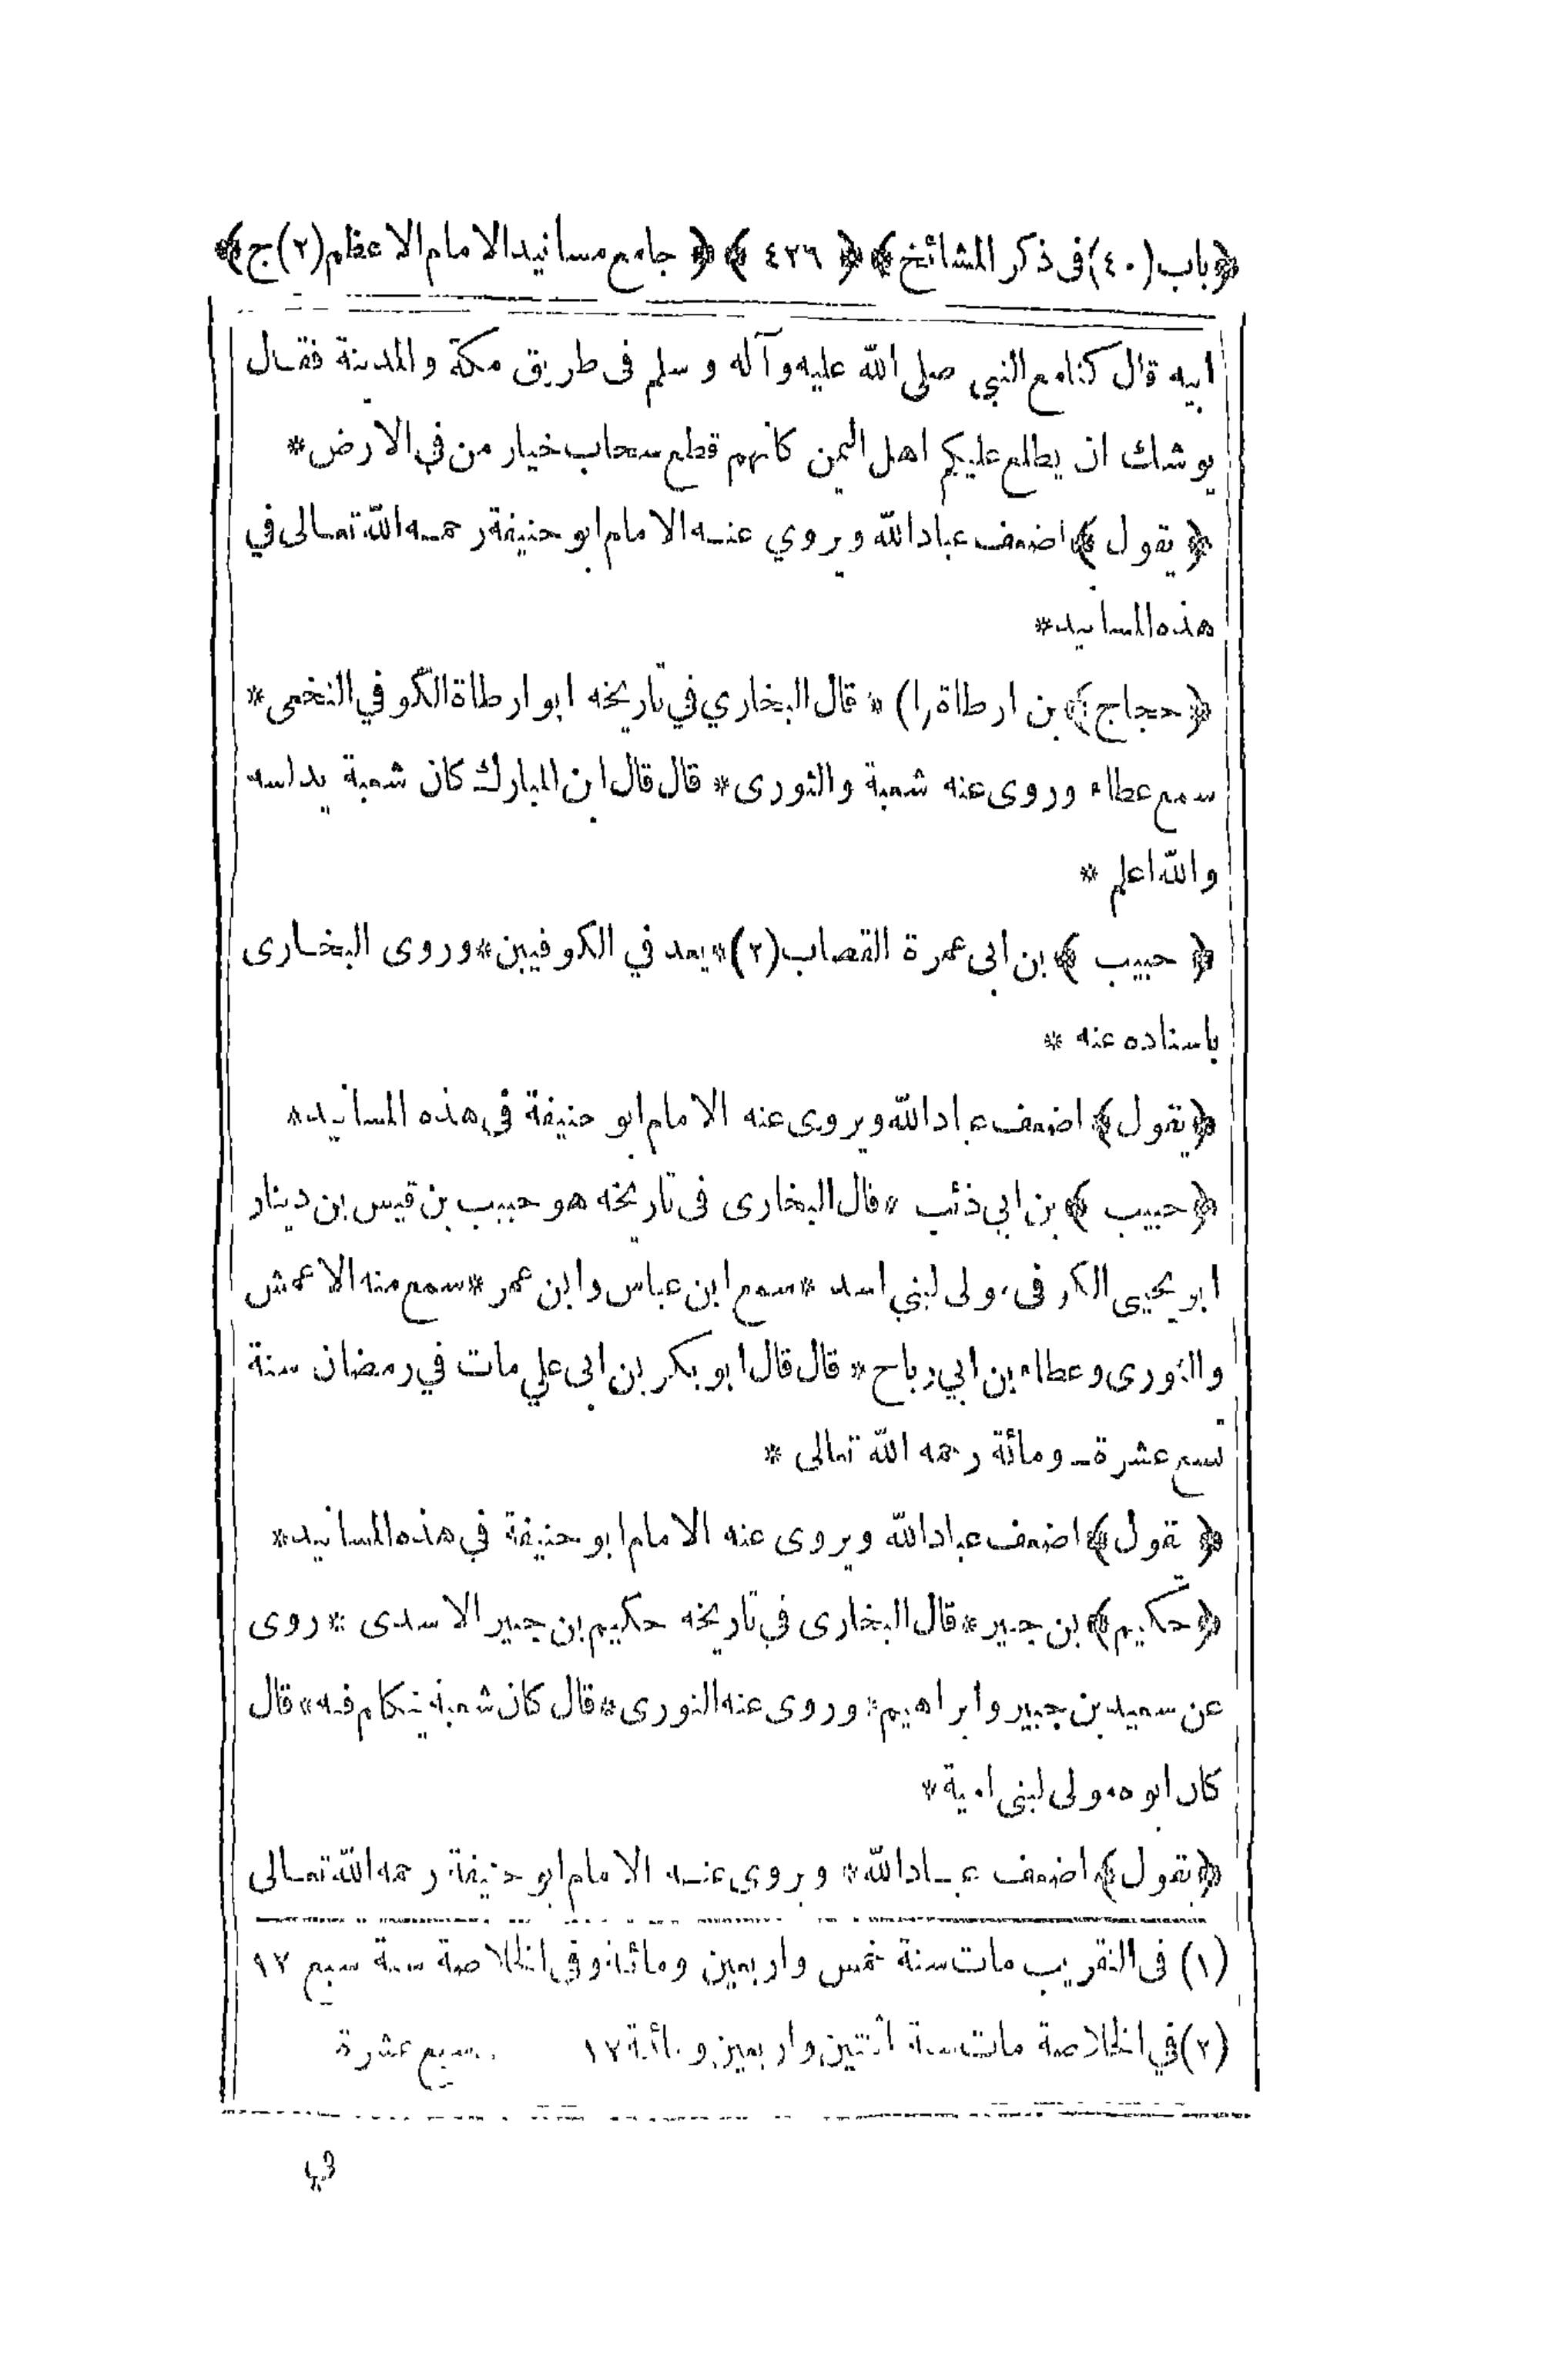 ﴿باب(٤٠)فى ذكر المشائخ﴾ ﴿ ٤٢٦ ﴾ ﴿ جامع مسانيد الامام الاعظم (٢)ج﴾
ابيه قال كنا مع النبي صلى الله عليه وآله وسلم فى طريق مكة والمدينة فقال
يوشك ان يطلع عليكم اهل اليمن كانهم قطع سحاب خيار من فى الارض *
﴿ يقول ﴾ اضعف عباد الله ويروي عنه الامام ابو حنيفة رحمه الله تعالى في
هذه المسانيد *
﴿ حجاج ﴾ بن ارطاة (١) * قال البخاري في تاريخه ابو ارطاة الكوفي النخعى *
سمع عطاء وروى عنه شعبة والثورى * قال قال ابن المبارك كان شعبة يدلسه
والله اعلم *
﴿ حبيب ﴾ بن ابى عمرة القصاب (٢) * يعد في الكوفيين * وروى البخارى
باسناده عنه *
﴿ يقول ﴾ اضعف عباد الله ويروى عنه الامام ابو حنيفة فى هذه المسانيد *
﴿ حبيب ﴾ بن ابي ذئب * قال البخارى فى تاريخه هو حبيب بن قيس بن دينار
ابو يحيى الكوفى مولى لبني اسد * سمع ابن عباس وابن عمر * سمع منه الاعمش
والثورى وعطاء بن ابي رباح * قال قال ابو بكر بن ابى علي مات في رمضان سنة
تسع عشرة ومائة رحمه الله تعالى *
﴿ يقول ﴾ اضعف عباد الله ويروى عنه الامام ابو حنيفة في هذه المسانيد *
﴿ حكيم ﴾ بن جبير * قال البخارى في تاريخه حكيم بن جبير الاسدى * روى
عن سعيد بن جبير وابراهيم * وروى عنه الثورى * قال كان شعبة يتكلم فيه * قال
كان ابوه مولى لبنى امية *
﴿ يقول ﴾ اضعف عباد الله * ويروى عنه الامام ابو حنيفة رحمه الله تعالى
(١) فى التقريب مات سنة خمس واربعين ومائة وفى الخلاصة سنة سبع ١٢
(٢) في الخلاصة مات سنة اثنتين واربعين ومائة ١٢ سبع عشرة